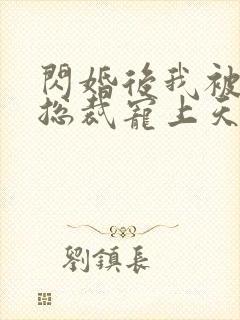 閃婚後我被
總裁寵上天
劉鎮長